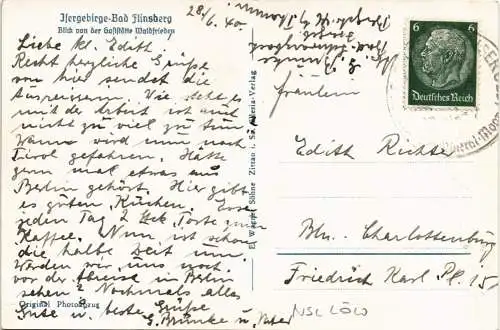 Isergebirge-Bad Flinsberg
Blick von der Gaststätte Waldfrieden
28/6. 40.
Liebe kl. Edith
Recht herzliche Grüße
von hier sendet die
Ausreißerin. Wie steht es
mit der Arbeit ist auch
nicht zu viel zu tun
Wann wird nun nach
Tirol gefahren. Hätte
gern mal etwas aus
Berlin gehört. Hier gibt
es guten Kuchen. Esse
jeden Tag 2 Stck. Torte zum
Kaffee. Nun ist schon
die halbe Zeit um.
Werden wir uns noch
vor der Abreise in Berlin
sehen? Nochmals alles
Gute u. beste Grüße
G. Brünke u. Vater
Original Photoabzug
El. Wagner Söhne Zittau i. Sa.
Verlag
6 6
Deutsches Reich
Fräulein
Edith Richter
Bln. Charlottenburg
Friedrich Karl Pl. 15
NSL LÖW